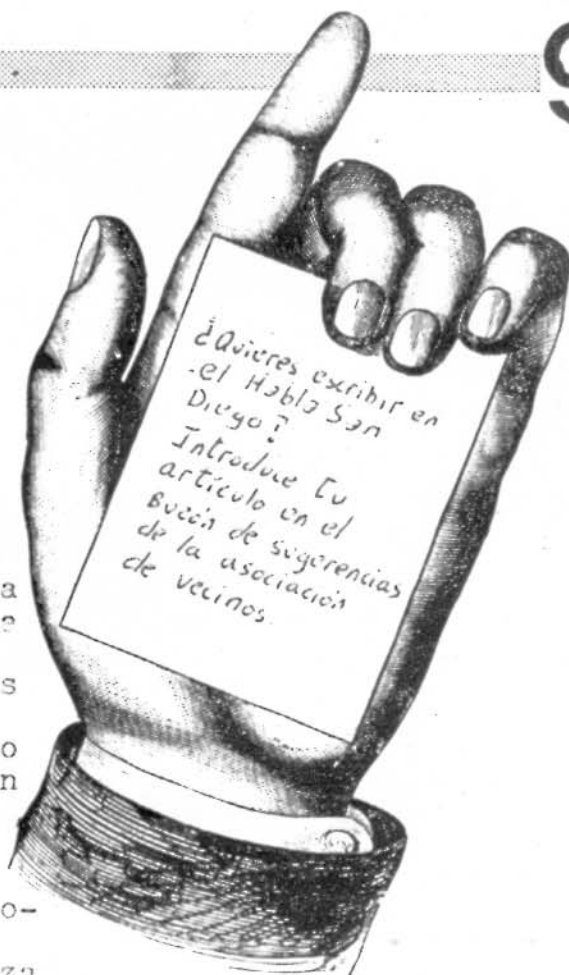 9
¿Quieres escribir en
el Habla San
Diego?
Introduce tu
artículo en el
Buzón de sugerencias
de la asociación
de vecinos.
a
e
s
o
n
o-
za